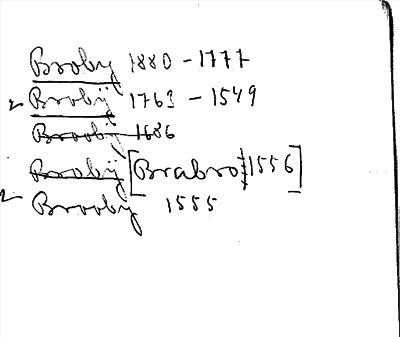 Broby 1880 - 1777
2 Brobÿ 1763 - 1549
Brooby 1686
Brobÿ [Brabro 1556]
2 Brooby 1555